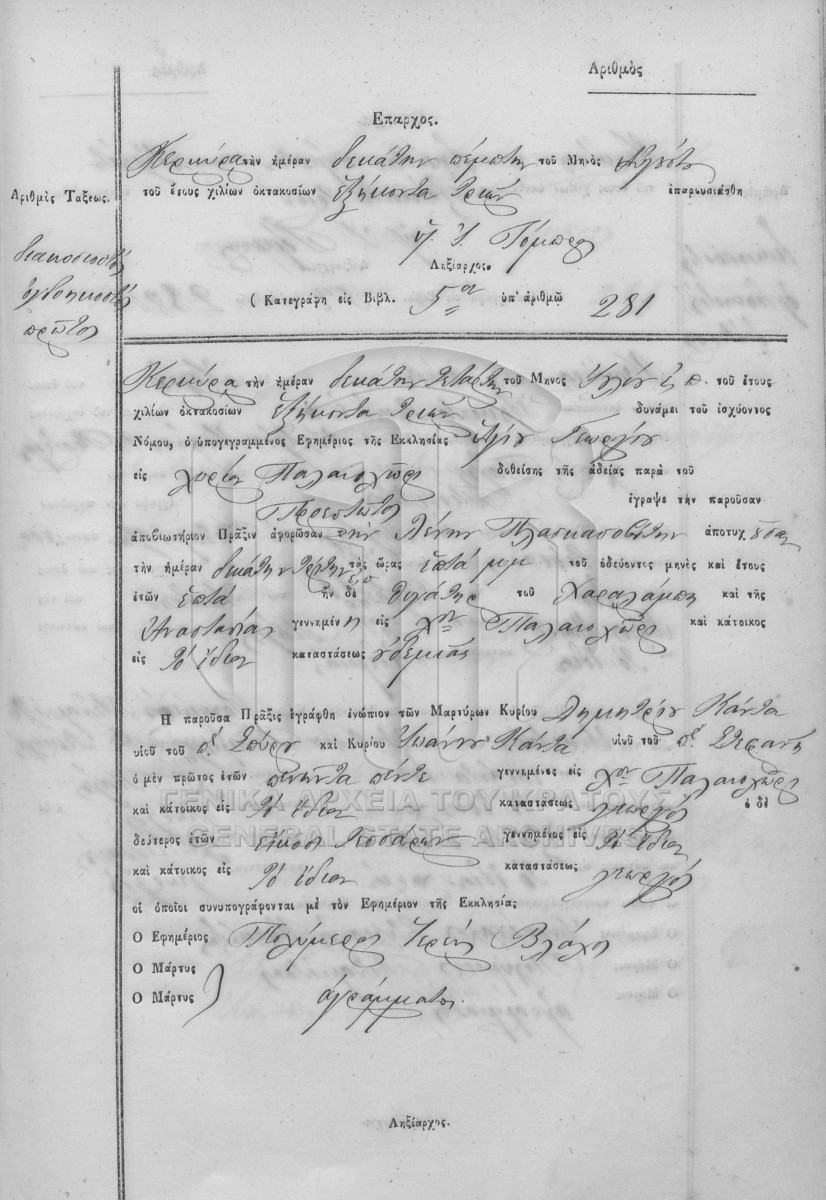 Ἀριθμὸς
Επαρχος.
Κερκύρα τὴν ἡμέραν δεκάτην πέμπτην τοῦ Μηνὸς
τοῦ ἔτους χιλίων ὀκτακοσίων ἑξήκοντα τριῶν ἐπαρουσιάσθη
Ληξίαρχος
(Κατεγράφη εἰς Βιβλ. 5ον ὑπ' ἀριθμῶ 281
Ἀριθμὸς Τάξεως.
διακοσιοστὸς
ὀγδοηκοστὸς
πρῶτος
Κερκύρα τὴν ἡμέραν δεκάτην τετάρτην τοῦ Μηνος τοῦ ἔτους
χιλίων ὀκτακοσίων ἑξήκοντα τριῶν δυνάμει τοῦ ἰσχύοντος
Νόμου, ὁ ὑπογεγραμμένος Ἐφημέριος τῆς Ἐκκλησίας Ἁγίου Γεωργίου
εἰς χωρίον Παλαιοχῶρι δοθείσης τῆς ἀδείας παρὰ τοῦ
Προεστῶτος ἔγραψε τὴν παροῦσαν
ἀποβιωτήριον Πρᾶξιν ἀφορῶσαν τὴν Λένην ἀποτυχοῦσαν
τὴν ἡμέραν δεκάτην τρίτην τὰς ὥρας ἑπτὰ μμ τοῦ ὁδεύοντος μηνὸς καὶ ἔτους
ἐτῶν ἑπτὰ ἦν δὲ θυγάτηρ τοῦ Χαραλάμπη καὶ τῆς
Ἀναστασίας γεννημένη εἰς χον Παλαιοχῶρι καὶ κάτοικος
εἰς τὸ ἴδιον καταστάσεως οὐδεμιᾶς
Ἡ παροῦσα Πρᾶξις ἐγράφθη ἐνώπιον τῶν Μαρτύρων Κυρίου Δημητρίου Κάντα
υἱοῦ τοῦ πο Σπύρου καὶ Κυρίου Ἰωάννου Κάντα υἱοῦ τοῦ πο Στεφανῆ
ὁ μὲν πρῶτος ἐτῶν πενῆντα πέντε γεννημένος εἰς χον Παλαιοχῶρι
καὶ κάτοικος εἰς τὸ ἴδιον καταστάσεως γεωργός ὁ δὲ
δεύτερος ἐτῶν εἴκοσι τεσσάρων γεννημένος εἰς τὸ ἴδιον
καὶ κάτοικος εἰς τὸ ἴδιον καταστάσεως γεωργός
οἱ ὁποῖοι συνυπογράφονται μὲ τὸν Ἐφημέριον τῆς Ἐκκλησίας
Ὁ Ἐφημέριος Πολύμερος Ἱερεὺς Βλάχος
Ὁ Μάρτυς
Ὁ Μάρτυς ἀγράμματοι.
Ληξίαρχος.
ΓΕΝΙΚΑ ΑΡΧΕΙΑ ΤΟΥ ΚΡΑΤΟΥΣ
GENERAL STATE ARCHIVES